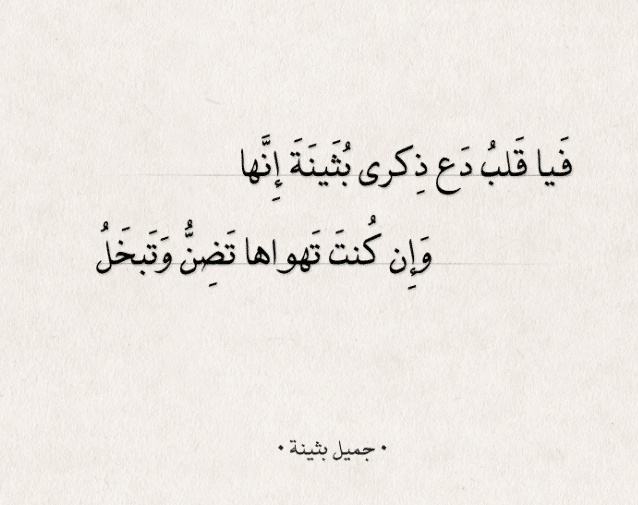 فَيا قَلبُ دَع ذِكرى بُثَينَةَ إِنَّها
وَإِن كُنتَ تَهواها تَضِنُّ وَتَبخَلُ
• جميل بثينة •